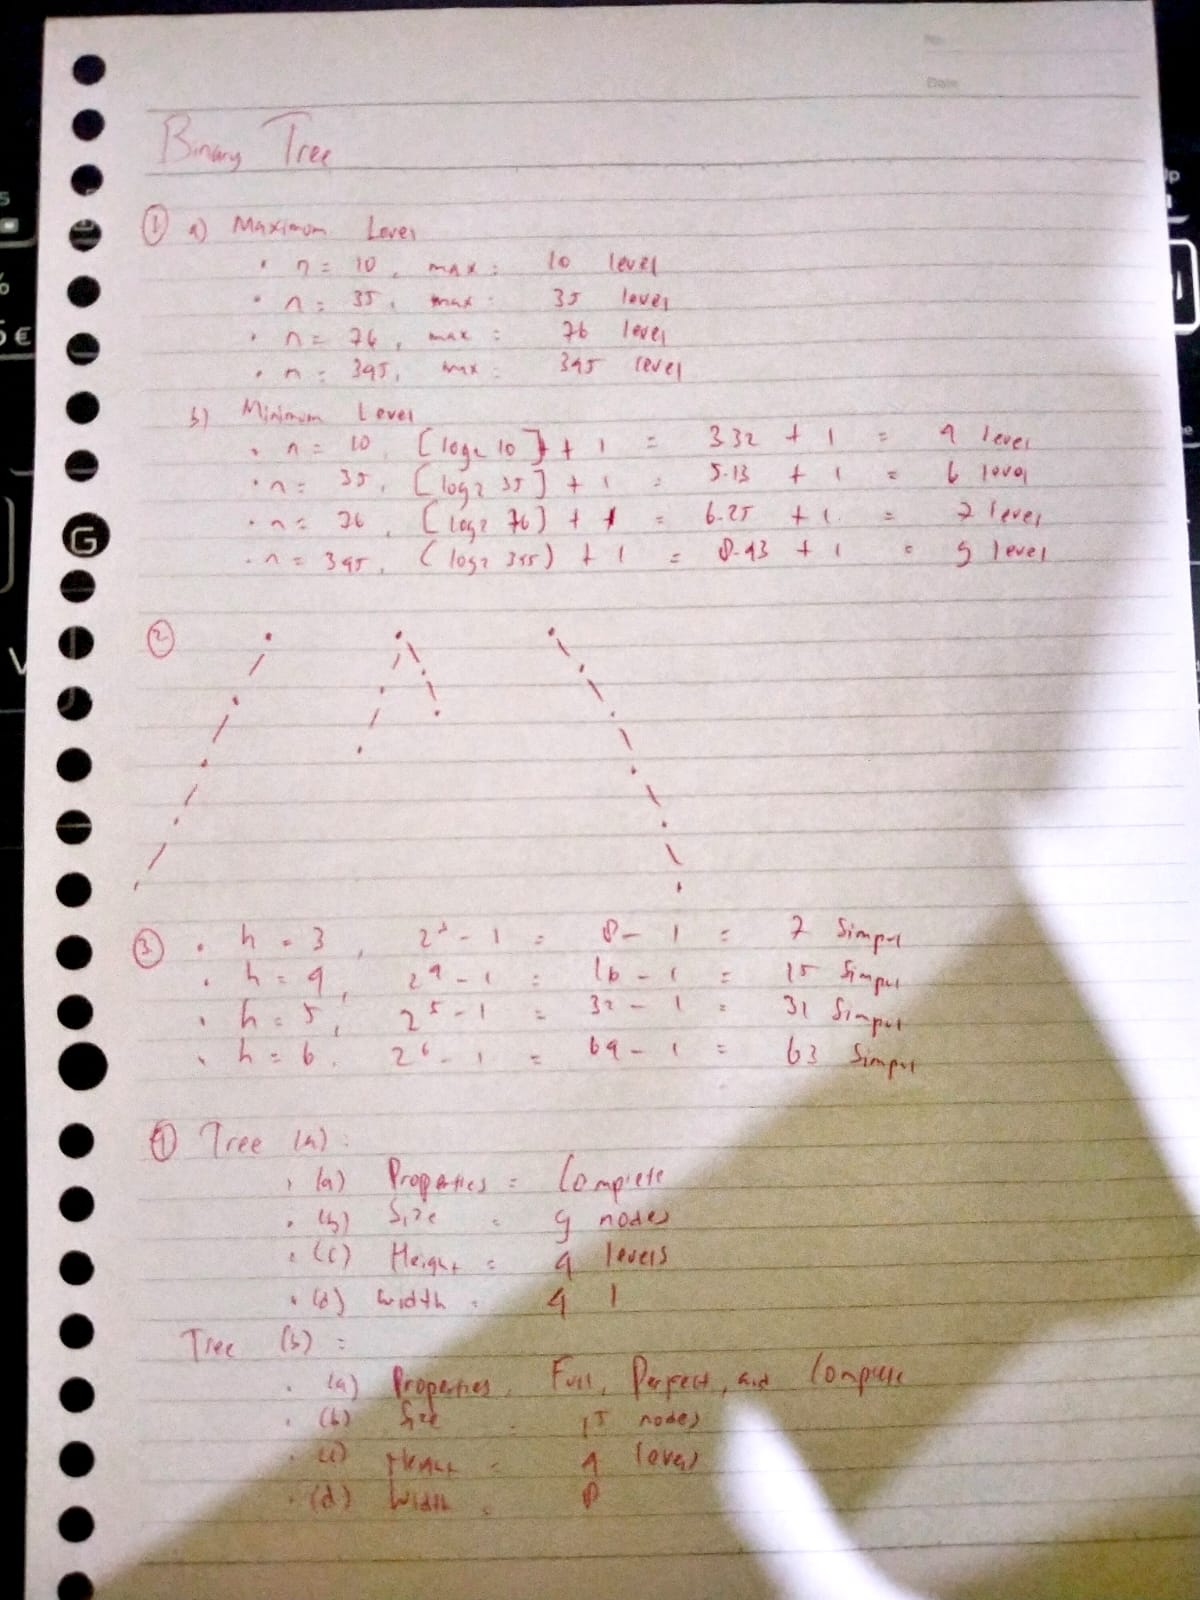 No.
Date
Binary Tree
① a) Maximum Level
• n = 10, max = 10 level
• n = 35, max = 35 level
• n = 76, max = 76 level
• n = 395, max = 395 level
b) Minimum Level
• n = 10, [log2 10] + 1 = 3.32 + 1 = 4 level
• n = 35, [log2 35] + 1 = 5.13 + 1 = 6 level
• n = 76, [log2 76] + 1 = 6.25 + 1 = 7 level
• n = 395, (log2 395) + 1 = 8.43 + 1 = 9 level
②
③ • h = 3, 2³ - 1 = 8 - 1 = 7 Simpul
• h = 4, 2⁴ - 1 = 16 - 1 = 15 Simpul
• h = 5, 2⁵ - 1 = 32 - 1 = 31 Simpul
• h = 6, 2⁶ - 1 = 64 - 1 = 63 Simpul
④ Tree (a):
• (a) Properties = Complete
• (b) Size = 9 nodes
• (c) Height = 4 levels
• (d) Width = 4
Tree (b) =
• (a) Properties = Full, Perfect, and Complete
• (b) Size = 15 nodes
• (c) Height = 4 levels
• (d) Width = 8
G
5
%
5 €